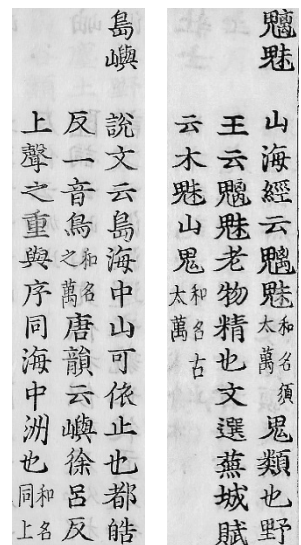 魑魅
山海經云魑魅和名須太萬鬼類也野
王云魑魅老物精也文選蕪城賦
云木魅山鬼和名古太萬
島嶼
說文云島海中山可依止也都皓
反一音鳥和名之萬唐韻云嶼徐呂反
上聲之重與序同海中洲也和名同上